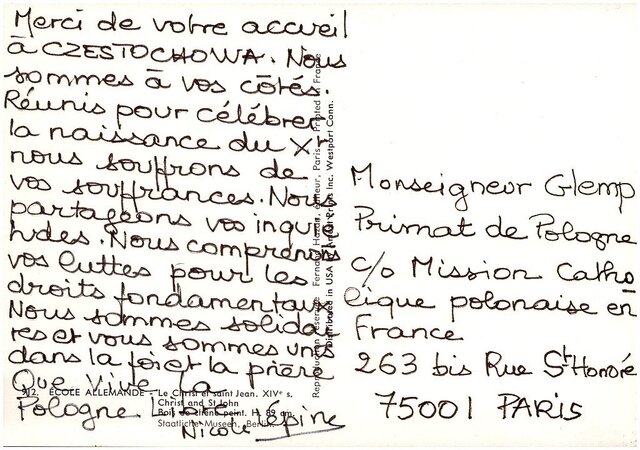 Merci de votre accueil
à CZESTOCHOWA. Nous
sommes à vos côtés.
Réunis pour célébrer
la naissance du Xr
nous souffrons de
vos souffrances. Nous
partageons vos inquié
tudes. Nous comprenons
vos luttes pour les
droits fondamentaux.
Nous sommes solidai
res et vous sommes unis
dans la foi et la prière
Que vive la
Pologne Libre
Nicole Epine
912. ÉCOLE ALLEMANDE - Le Christ et saint Jean. XIVe s.
Christ and St John
Bois de chêne peint. H. 89 cm.
Staatliche Museen, Berlin.
Reproduction réservée. Fernand Hazan, éditeur, Paris. Printed in France
Distributed in USA Artext Prints Inc. Westport Conn.
Monseigneur Glemp
Primat de Pologne
c/o Mission Catho
lique polonaise en
France
263 bis Rue St Honoré
75001 PARIS